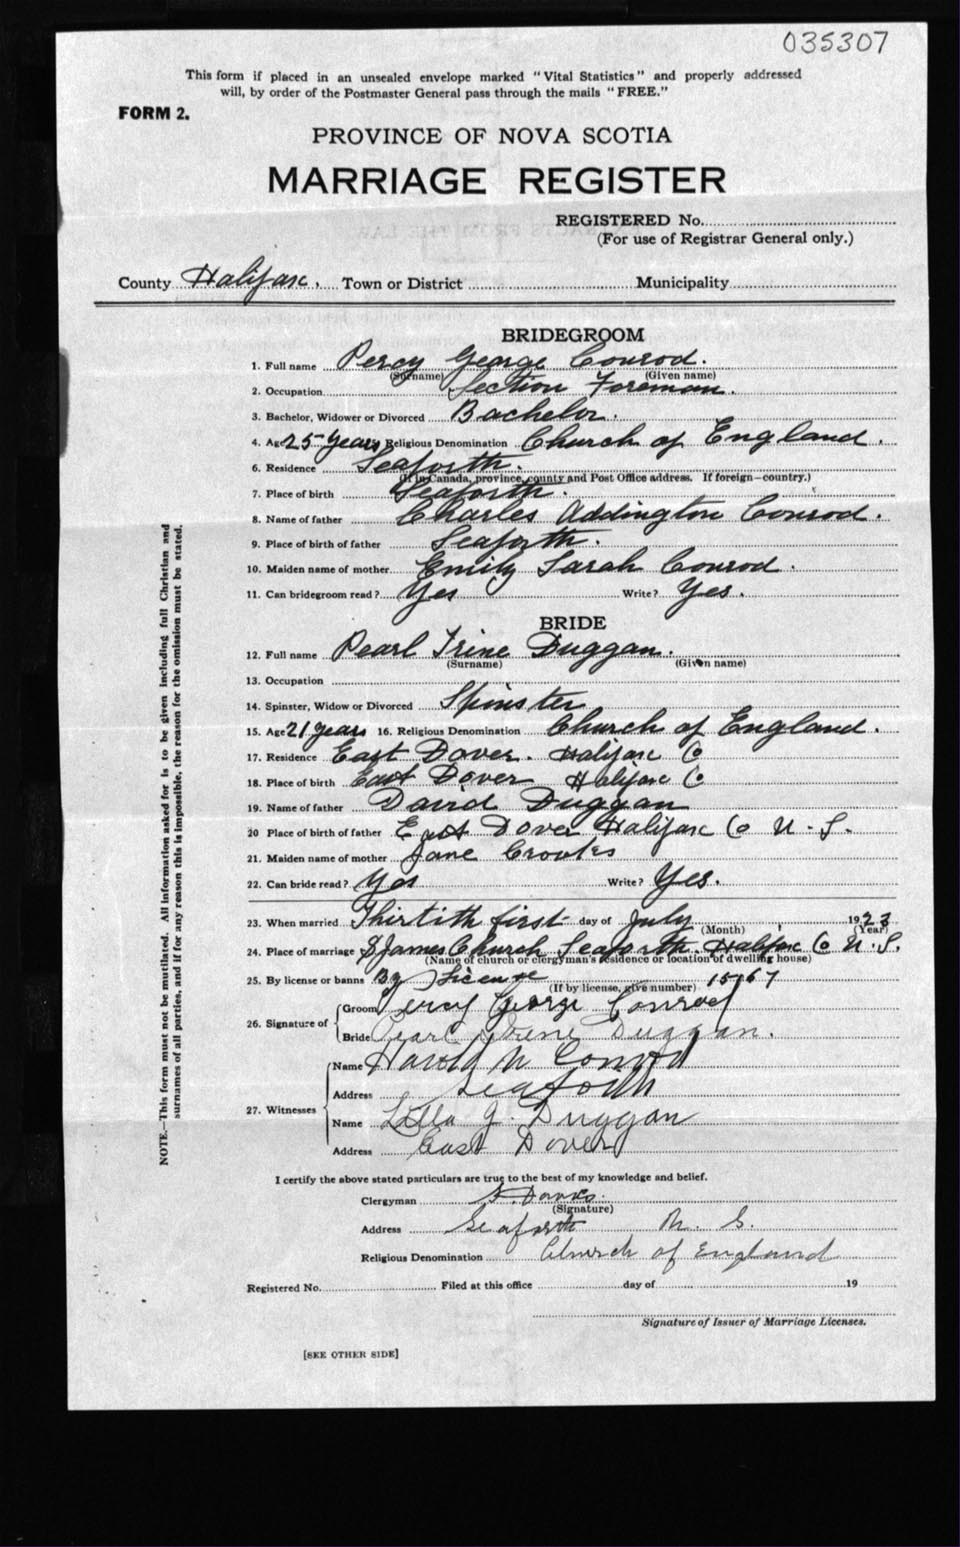 035307
This form if placed in an unsealed envelope marked "Vital Statistics" and properly addressed
will, by order of the Postmaster General pass through the mails "FREE."
FORM 2.
PROVINCE OF NOVA SCOTIA
MARRIAGE REGISTER
REGISTERED No.
(For use of Registrar General only.)
County Halifax, Town or District Municipality
BRIDEGROOM
1. Full name Percy George Conrod.
(Surname) (Given name)
2. Occupation Section Foreman.
3. Bachelor, Widower or Divorced Bachelor.
4. Age 25 years Religious Denomination Church of England.
6. Residence Seaforth.
(If in Canada, province, county and Post Office address. If foreign—country.)
7. Place of birth Seaforth.
8. Name of father Charles Addington Conrod.
9. Place of birth of father Seaforth.
10. Maiden name of mother Emily Sarah Conrod.
11. Can bridegroom read? Yes Write? Yes.
BRIDE
12. Full name Pearl Irine Duggan.
(Surname) (Given name)
13. Occupation
14. Spinster, Widow or Divorced Spinster
15. Age 21 years 16. Religious Denomination Church of England.
17. Residence East Dover. Halifax Co
18. Place of birth East Dover Halifax Co
19. Name of father David Duggan
20 Place of birth of father East Dover Halifax Co N.S.
21. Maiden name of mother Jane Crooks
22. Can bride read? Yes Write? Yes.
23. When married Thirtith first day of July 1923
(Month) (Year)
24. Place of marriage S James Church Seaforth Halifax Co N.S.
(Name of church or clergyman's residence or location of dwelling house)
25. By license or banns By License 15167
(If by license, give number)
26. Signature of Groom Percy George Conrod
Bride Pearl Irene Duggan.
27. Witnesses Name Harold N Conrod
Address Seaforth
Name Lilla J. Duggan
Address East Dover
I certify the above stated particulars are true to the best of my knowledge and belief.
Clergyman
(Signature)
Address Seaforth N. S.
Religious Denomination Church of England
Registered No. Filed at this office day of 19
Signature of Issuer of Marriage Licenses.
[SEE OTHER SIDE]
NOTE.—This form must not be mutilated. All information asked for is to be given including full Christian and
surnames of all parties, and if for any reason this is impossible, the reason for the omission must be stated.